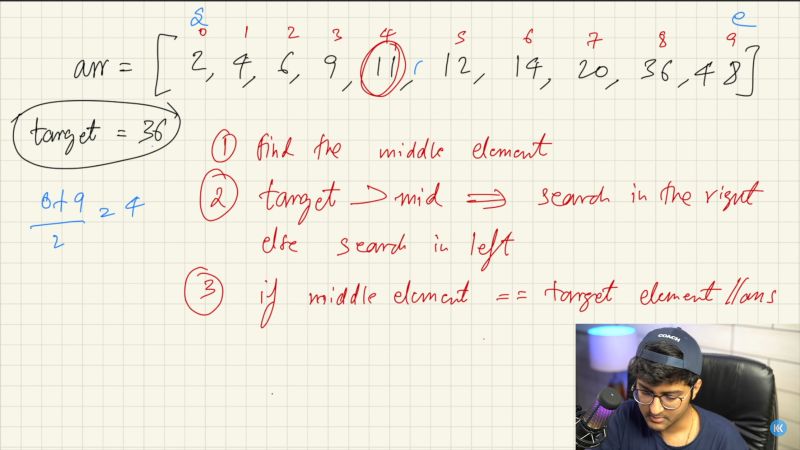 s e
0 1 2 3 4 5 6 7 8 9
arr = [2, 4, 6, 9, 11, 12, 14, 20, 36, 48]
target = 36
0+9
2
= 4
① find the middle element
② target > mid ⇒ search in the right
else search in left
③ if middle element == target element //ans
COACH
K